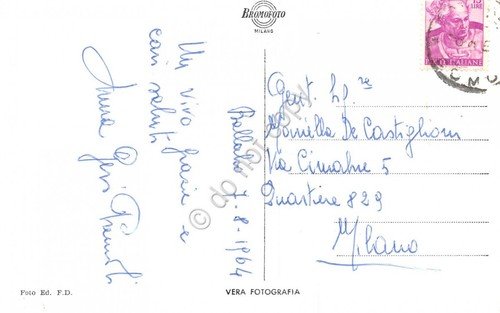 BROMOFOTO
MILANO
15
LIRE
POSTE ITALIANE
Un vivo grazie e
cari saluti
Anna
Ballabio 7-8-1964
Gent. Sig.re
Ornella De Castiglioni
Via Cimabue 5
Quartiere 829
Milano
Foto Ed. F.D.
VERA FOTOGRAFIA
do not copy